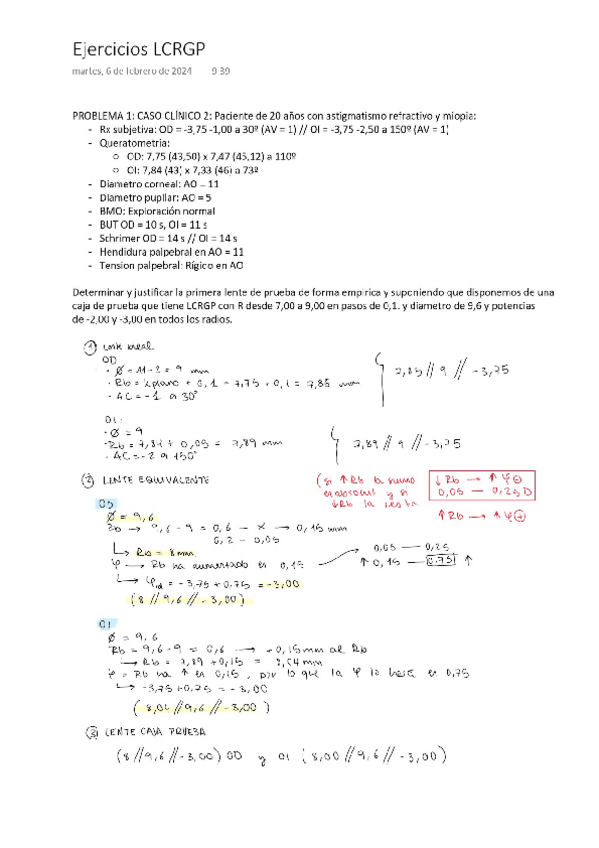 Ejercicios LCRGP
martes, 6 de febrero de 2024 9:39
PROBLEMA 1: CASO CLÍNICO 2: Paciente de 20 años con astigmatismo refractivo y miopia:
- Rx subjetiva: OD = -3,75 -1,00 a 30º (AV = 1) // OI = -3,75 -2,50 a 150º (AV = 1)
- Queratometria:
○ OD: 7,75 (43,50) x 7,47 (45,12) a 110º
○ OI: 7,84 (43) x 7,33 (46) a 73º
- Diametro corneal: AO = 11
- Diametro pupilar: AO = 5
- BMO: Exploración normal
- BUT OD = 10 s, OI = 11 s
- Schrimer OD = 14 s // OI = 14 s
- Hendidura palpebral en AO = 11
- Tension palpebral: Rígico en AO
Determinar y justificar la primera lente de prueba de forma empirica y suponiendo que disponemos de una
caja de prueba que tiene LCRGP con R desde 7,00 a 9,00 en pasos de 0,1. y diametro de 9,6 y potencias
de -2,00 y -3,00 en todos los radios.
① Lente ideal
OD
· Ø = 11 - 2 = 9 mm
· Rb = K plano + 0,1 = 7,75 + 0,1 = 7,85 mm
· AC = -1 a 30º
7,85 // 9 // -3,75
OI:
· Ø = 9
· Rb = 7,84 + 0,05 = 7,89 mm
· AC = -2 a 150º
7,89 // 9 // -3,75
② LENTE EQUIVALENTE
(si ↑ Rb la sumo
en absoluto y si
↓Rb la resta
↓ Rb → ↑ φ ⊖
0,05 — 0,25D
↑ Rb → ↑ φ ⊕
OD
Ø = 9,6
Rb → 9,6 - 9 = 0,6 - x → 0,15 mm
0,2 - 0,05
↳ Rb = 8mm
φ → Rb ha aumentado en 0,15
0,05 — 0,25
↑ 0,15 — 0,75 ↑
↳ φid = -3,75 + 0,75 = -3,00
(8 // 9,6 // -3,00)
OI
Ø = 9,6
Rb = 9,6 - 9 = 0,6 → +0,15 mm al Rb
→ Rb = 7,89 + 0,15 = 8,04 mm
φ = Rb ha ↑ en 0,15, por lo que la φ lo hará en 0,75
↳ -3,75 + 0,75 = -3,00
(8,04 // 9,6 // -3,00)
③ LENTE CAJA PRUEBA
(8 // 9,6 // -3,00) OD y OI (8,00 // 9,6 // -3,00)